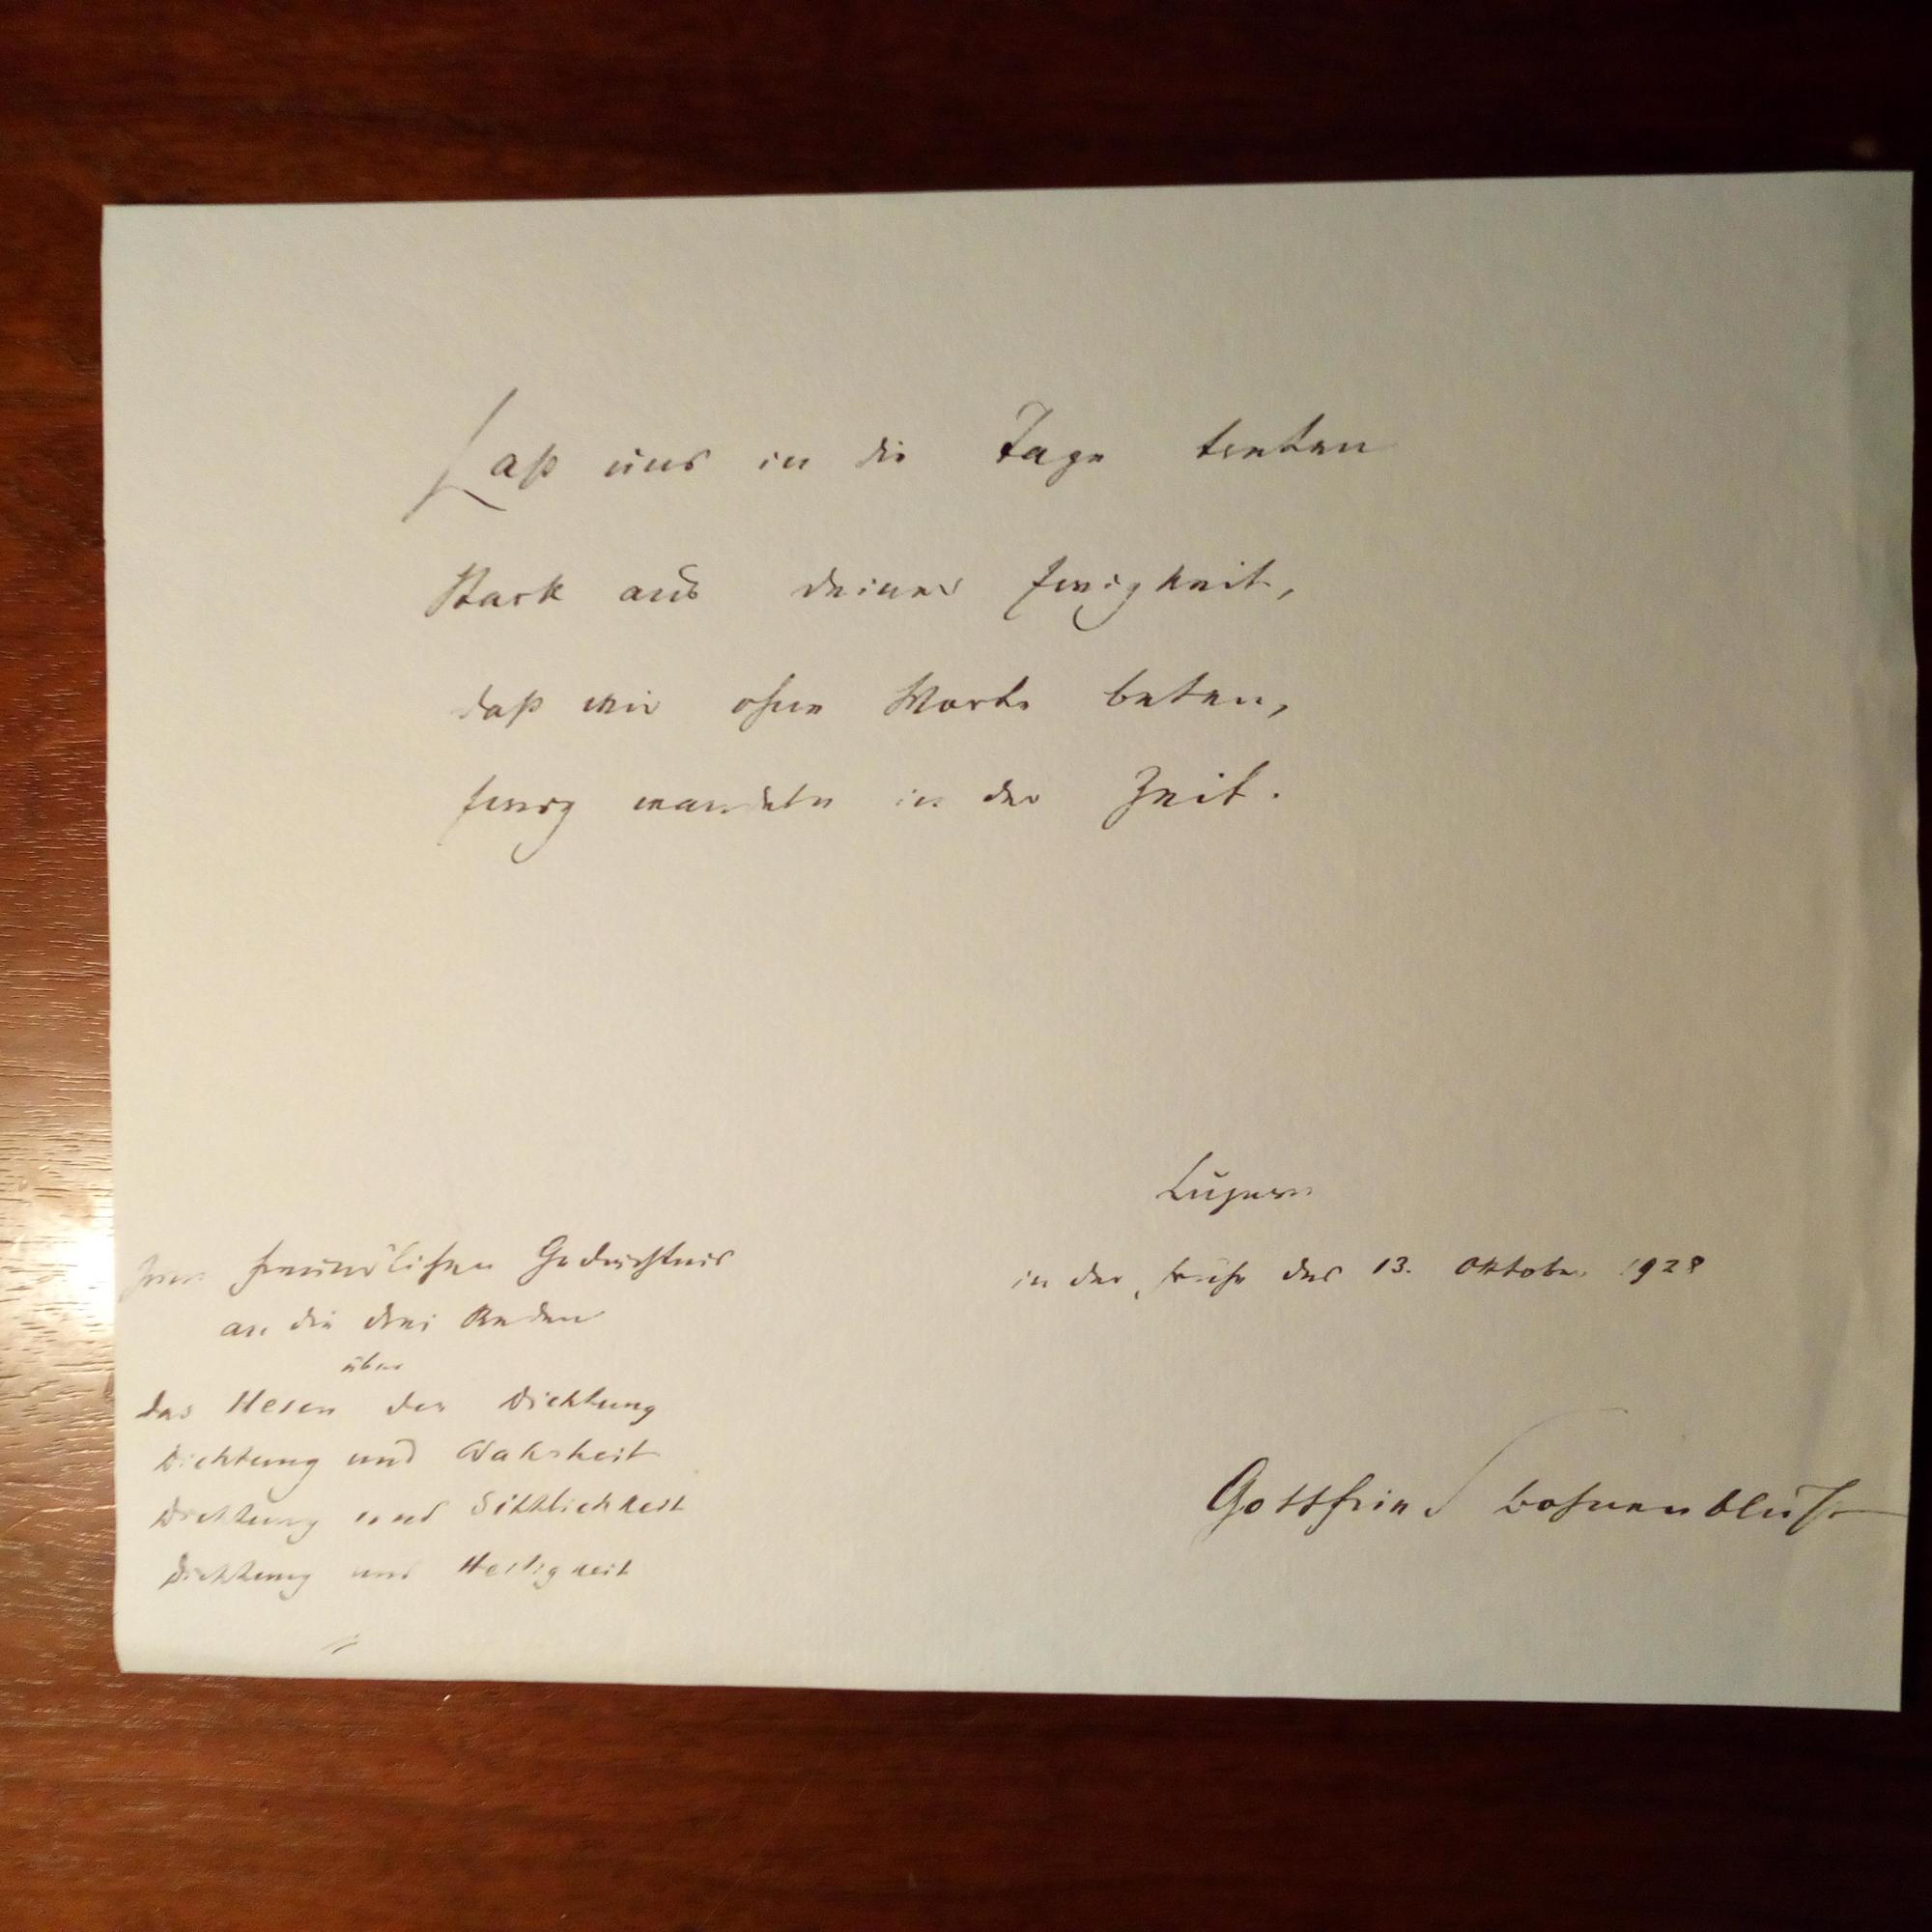 Laß uns in die Tage treten
Stark aus deiner Ewigkeit,
daß wir ohne Worte beten,
Ewig wandeln in der Zeit.
Luzern
in der Frühe des 13. Oktober 1928
Zum freundlichen Gedächtnis
an die drei Reden
über
das Wesen der Dichtung
Dichtung und Wahrheit
Dichtung und Sittlichkeit
Dichtung und Heiligkeit
Gottfried Bohnenblust